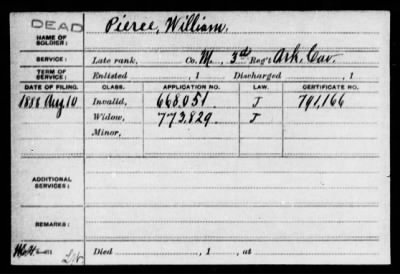 DEAD
NAME OF SOLDIER: Pierce, William.
SERVICE: Late rank, Co. M, 3d Reg't Ark. Cav.
TERM OF SERVICE: Enlisted , 1 Discharged , 1
DATE OF FILING. CLASS. APPLICATION NO. LAW. CERTIFICATE NO.
1888 Aug 10 Invalid, 668,051 J 791,166
Widow, 773,829 J
Minor,
ADDITIONAL SERVICES:
REMARKS:
Died , 1 , at